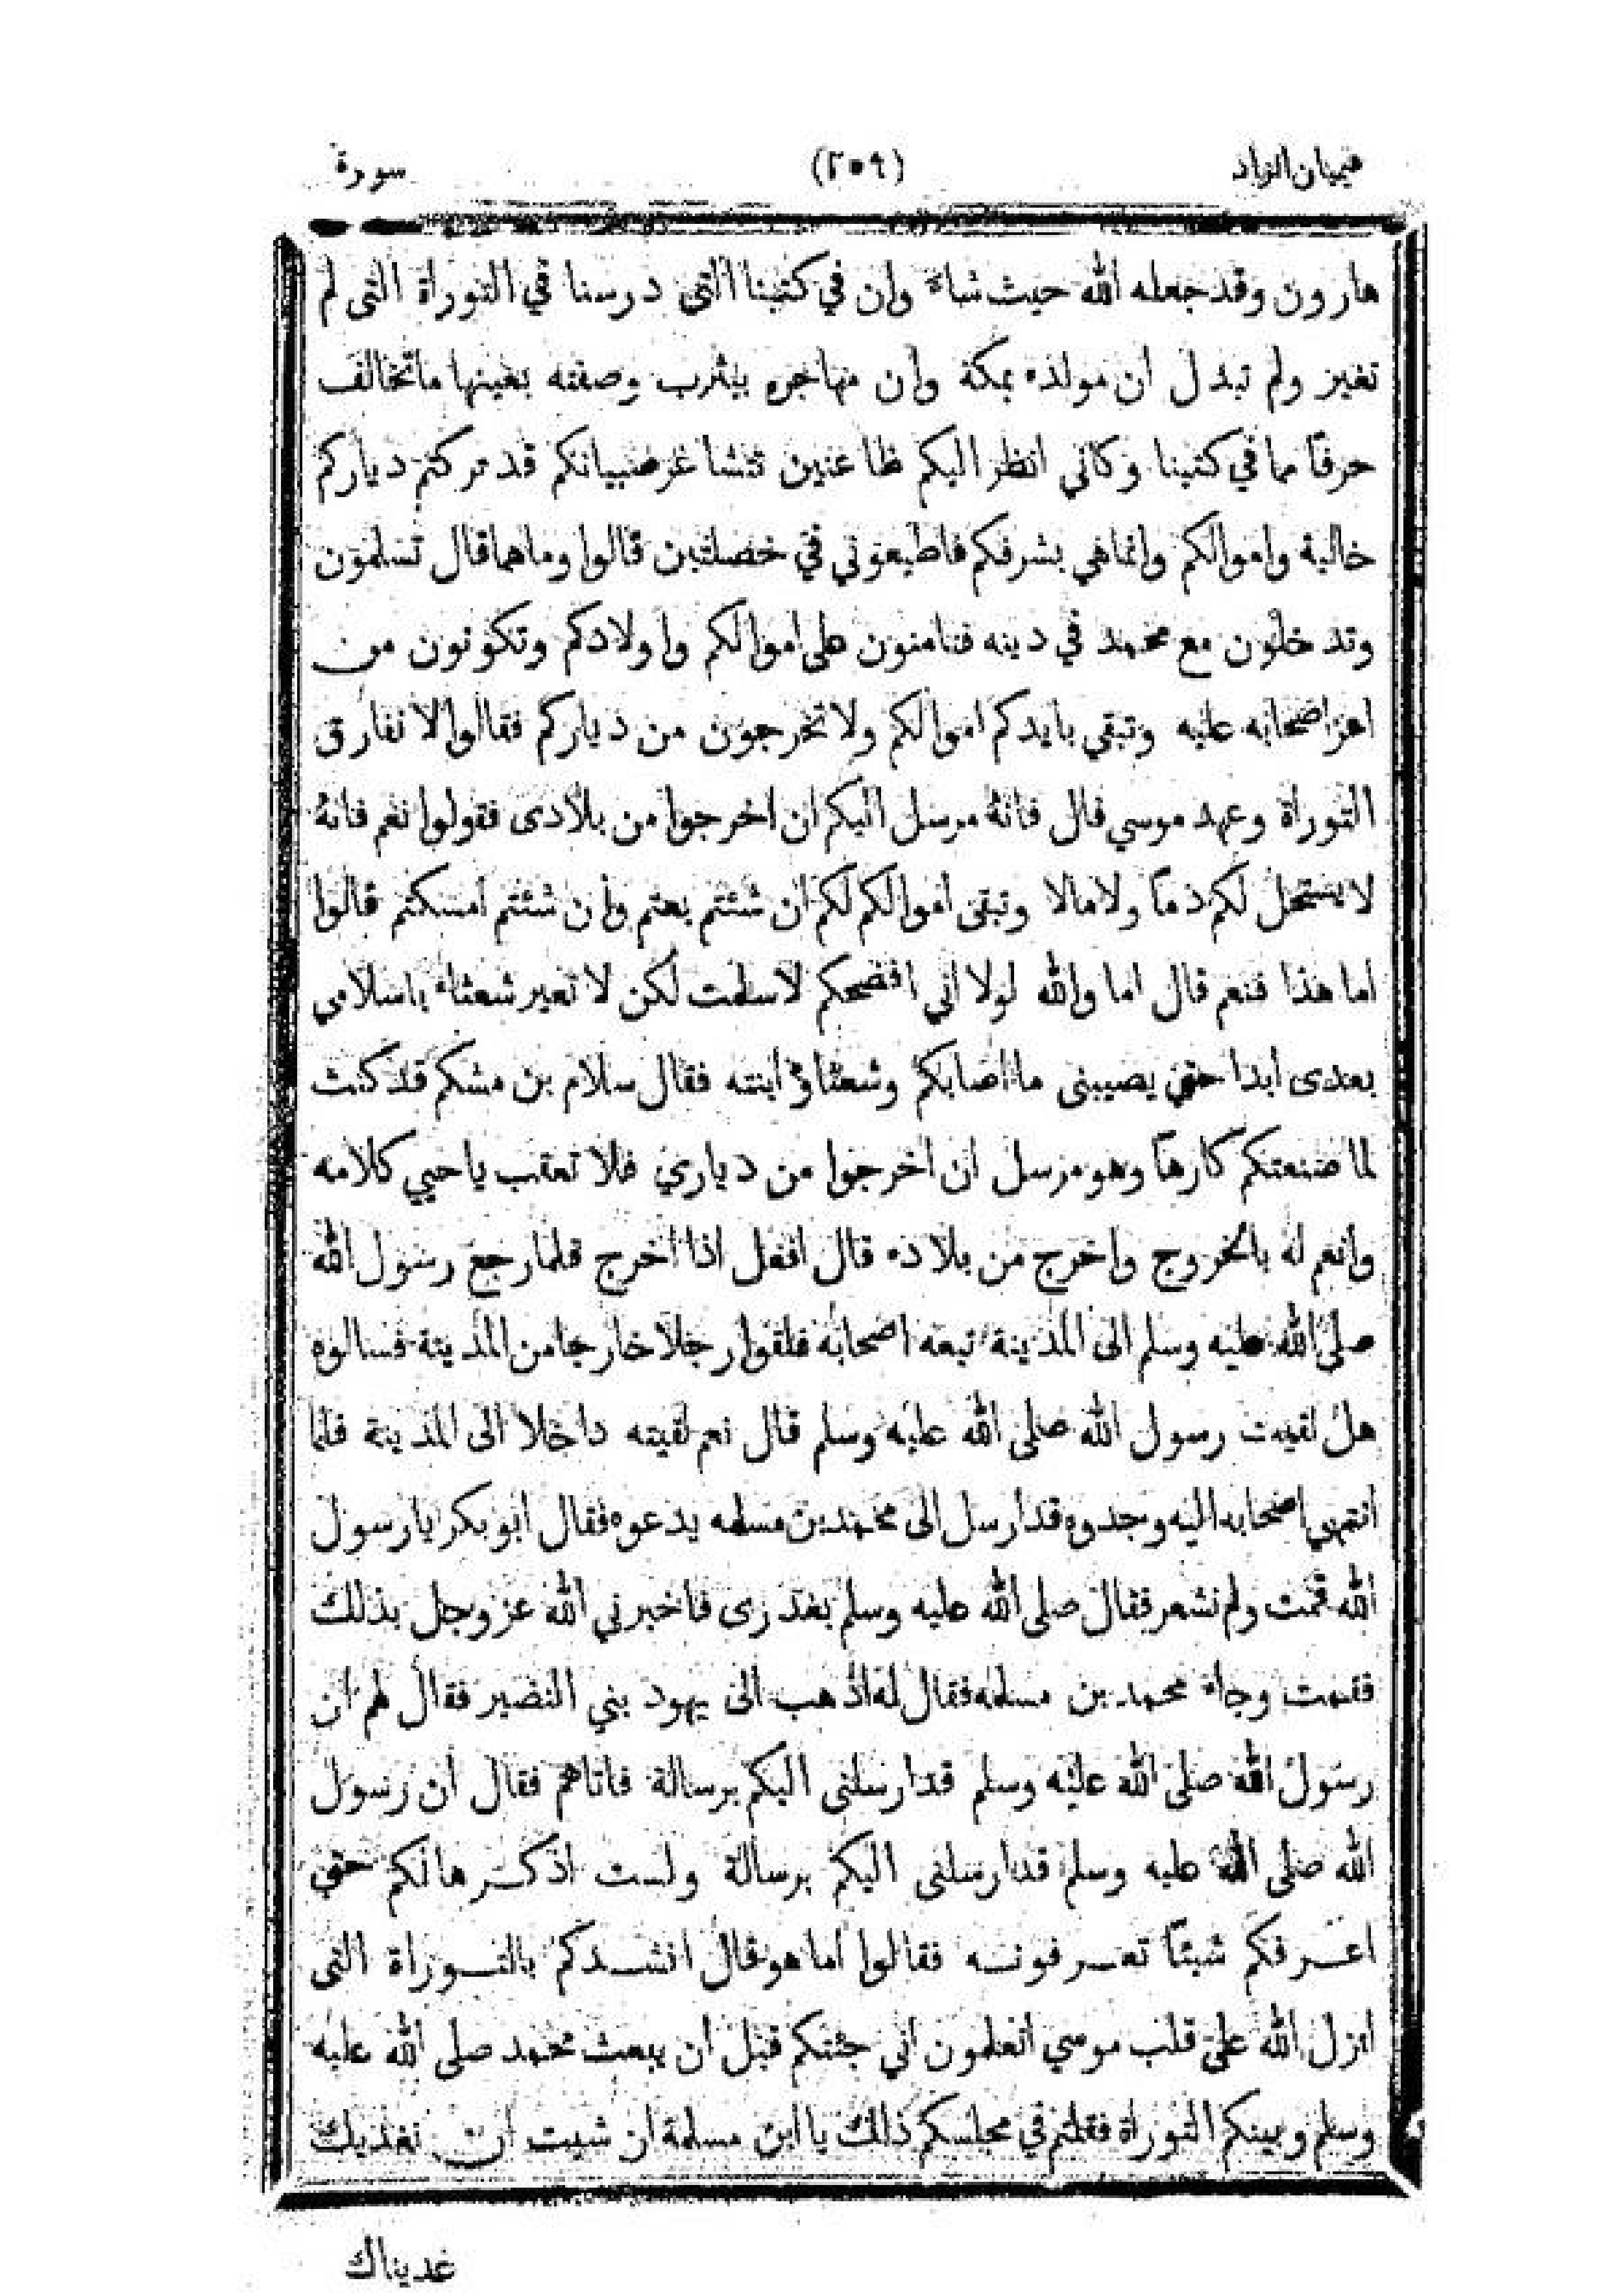 هميان الزاد (٢٥٩) سورة
هارون وقد جعله الله حيث شاء وان في كتبنا التى درسنا في التوراة التى لم
تغير ولم تبدل أن مولده بمكة وأن مهاجره يثرب وصفته بعينها ما تخالف
حرفا مما في كتبنا وكأني انظر اليكم ظاعنين تتشاغر صبيانكم قد تركتم دياركم
خالية واموالكم وانما هي بشرفكم فاطيعوني في خصلتين قالوا وما هما قال تسلمون
وتدخلون مع محمد في دينه فتامنون على اموالكم واولادكم وتكونون من
اعز اصحابه عليه وتبقى بايدكم اموالكم ولا تخرجون من دياركم فقالوا لا نفارق
التوراة وعهد موسي قال فانه مرسل اليكم ان اخرجوا من بلادى فقولوا نعم فانه
لا يستحل لكم دما ولا مالا وتبقى اموالكم لكم ان شئتم بعتم وأن شئتم أمسكتم قالوا
أما هذا فنعم قال اما والله لولا اني افضحكم لاسلمت لكن لا تعير شعثاء باسلامي
بعدى ابدا حتى يصيبنى ما اصابكم وشعثاؤ ابنته فقال سلام بن مشكم قد كنت
لما صنعتكم كارها وهو مرسل ان اخرجوا من دياري فلا تعقب يا حيي كلامه
وأنعم له بالخروج واخرج من بلاده قال افعل اذا اخرج فلما رجع رسول الله
صلى الله عليه وسلم الى المدينة تبعه اصحابه فلقوا رجلا خارجا من المدينة فسالوه
هل لقيت رسول الله صلى الله عليه وسلم قال نعم لقيته داخلا الى المدينة فلما
انتهى اصحابه اليه وجدوه قد أرسل الى محمد بن مسلمه يدعوه فقال أبو بكر يا رسول
الله قمت ولم نشعر فقال صلى الله عليه وسلم بغدرى فاخبرني الله عز وجل بذلك
فقمت وجاء محمد بن مسلمه فقال له اذهب الى يهود بني النضير فقال لهم ان
رسول الله صلى الله عليه وسلم قد ارسلنى اليكم برسالة فاتاهم فقال أن رسول
الله صلى الله عليه وسلم قد ارسلنى اليكم برسالة ولست اذكرها لكم حتى
اعرفكم شيئا تعرفونه فقالوا اما هو قال انشدكم بالتوراة التى
انزل الله على قلب موسي أتعلمون اني جئتكم قبل أن يبعث محمد صلى الله عليه
وسلم وبينكم التوراة فقلتم في مجلسكم ذلك يا ابن مسلمة ان شيت أن نغذيك
غديناك